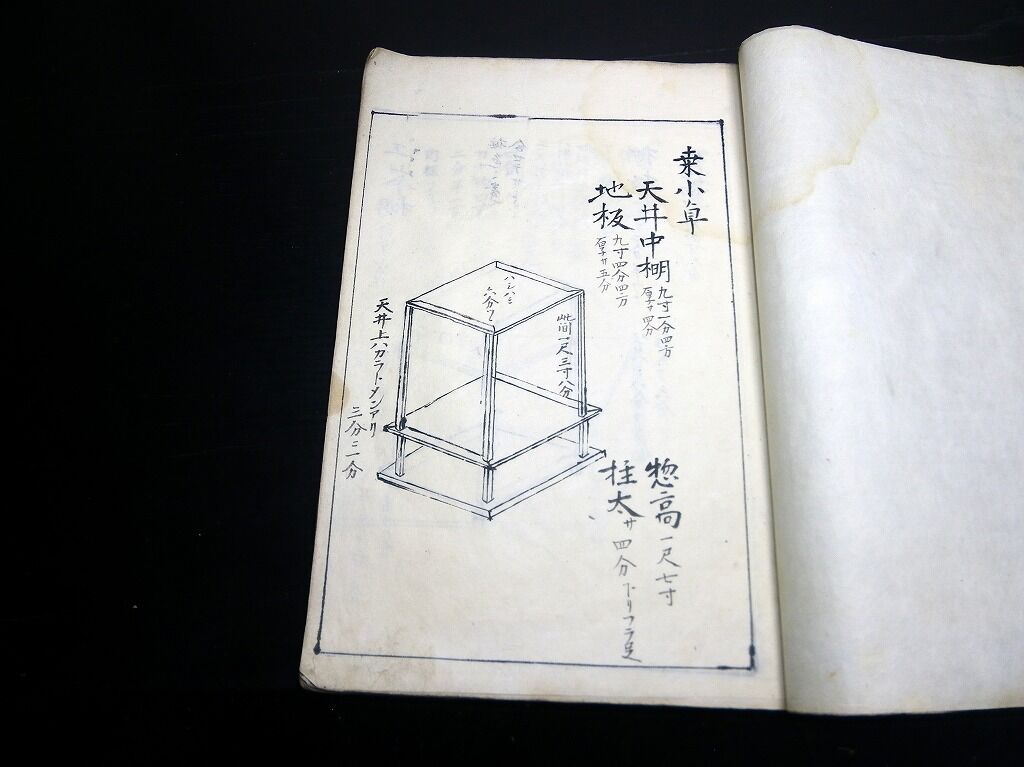 桒小卓
天井中棚 九寸一分四方
厚サ四分
地板 九寸四分四方
厚サ五分
此間一尺三寸八分
ハシハミ
六分
天井上ハガラトメンアリ
三分二一分
惣高 一尺七寸
柱太サ四分